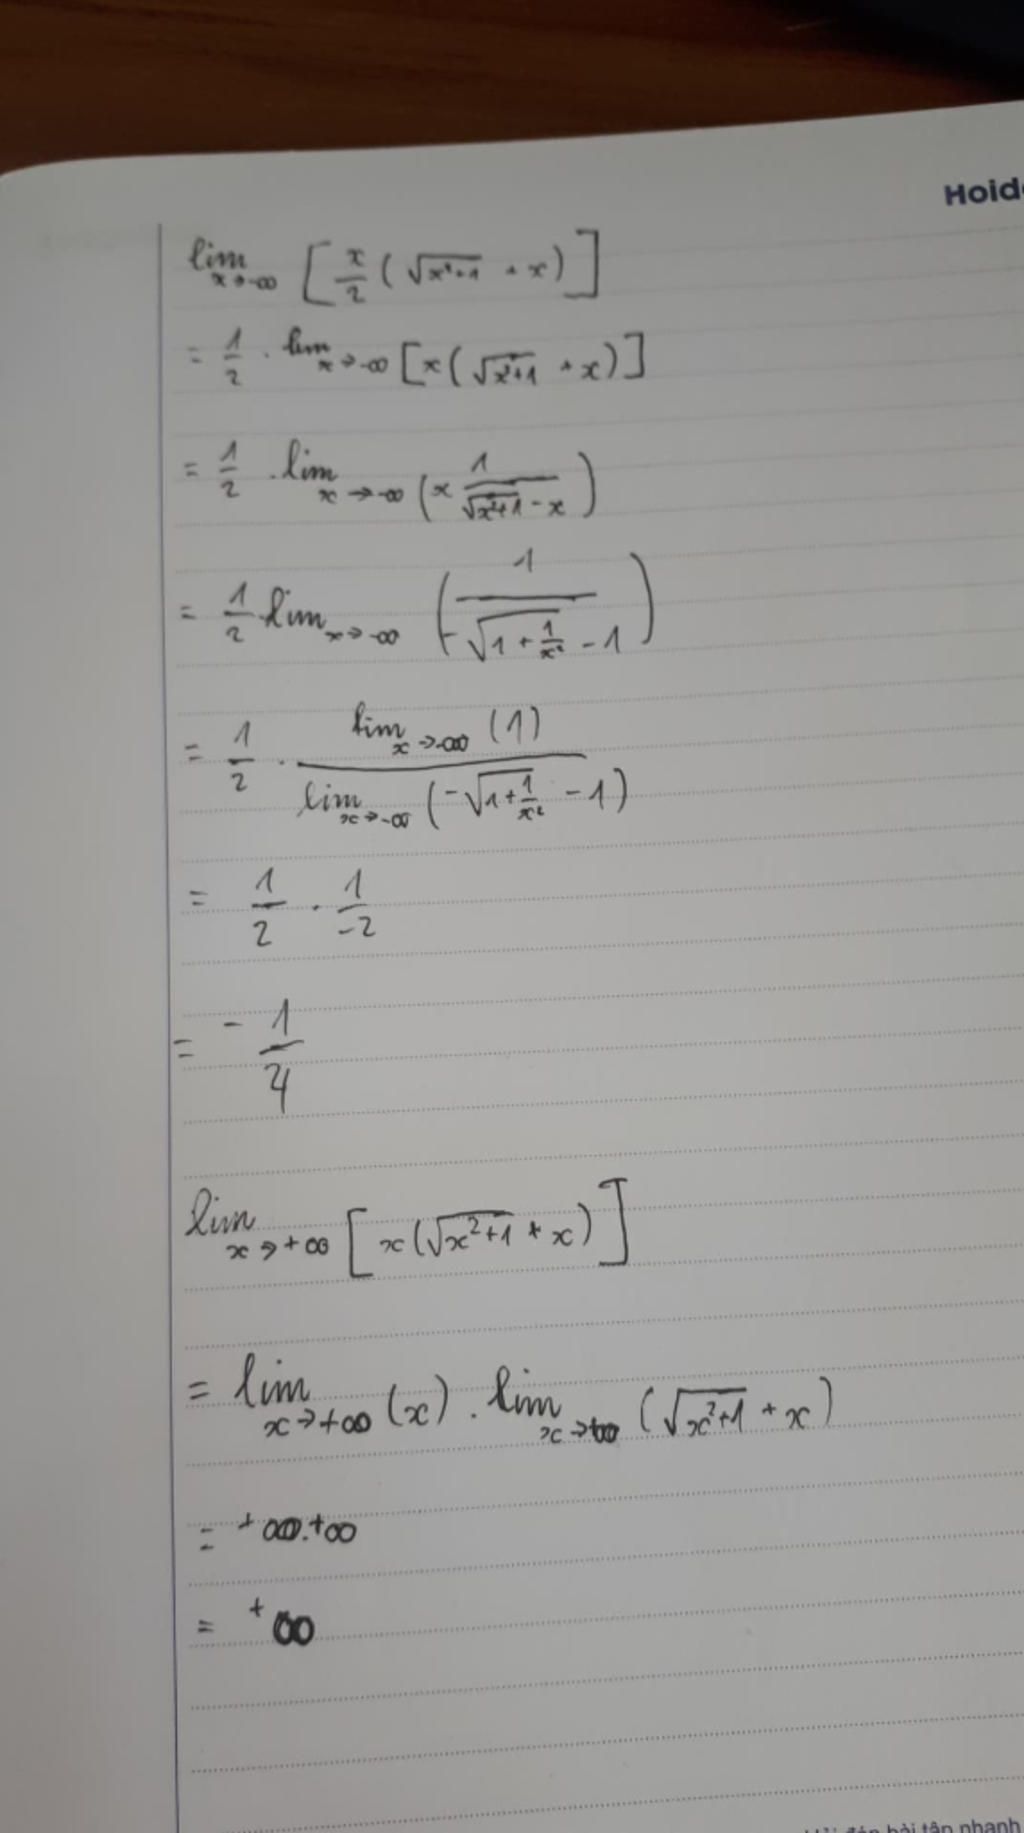 Hoid
lim x→-∞ [x/2 (√(x²+1) + x)]
= 1/2 . lim x→-∞ [x(√(x²+1) + x)]
= 1/2 . lim x→-∞ (x 1/(√(x²+1) - x))
= 1/2 lim x→-∞ (1/(-√(1 + 1/x²) - 1))
= 1/2 . lim x→-∞ (1) / lim x→-∞ (-√(1+1/x²) - 1)
= 1/2 . 1/-2
= -1/4
lim x→+∞ [x(√(x²+1) + x)]
= lim x→+∞ (x) . lim x→+∞ (√(x²+1) + x)
= +∞.+∞
= +∞
đáp bài tập nhanh